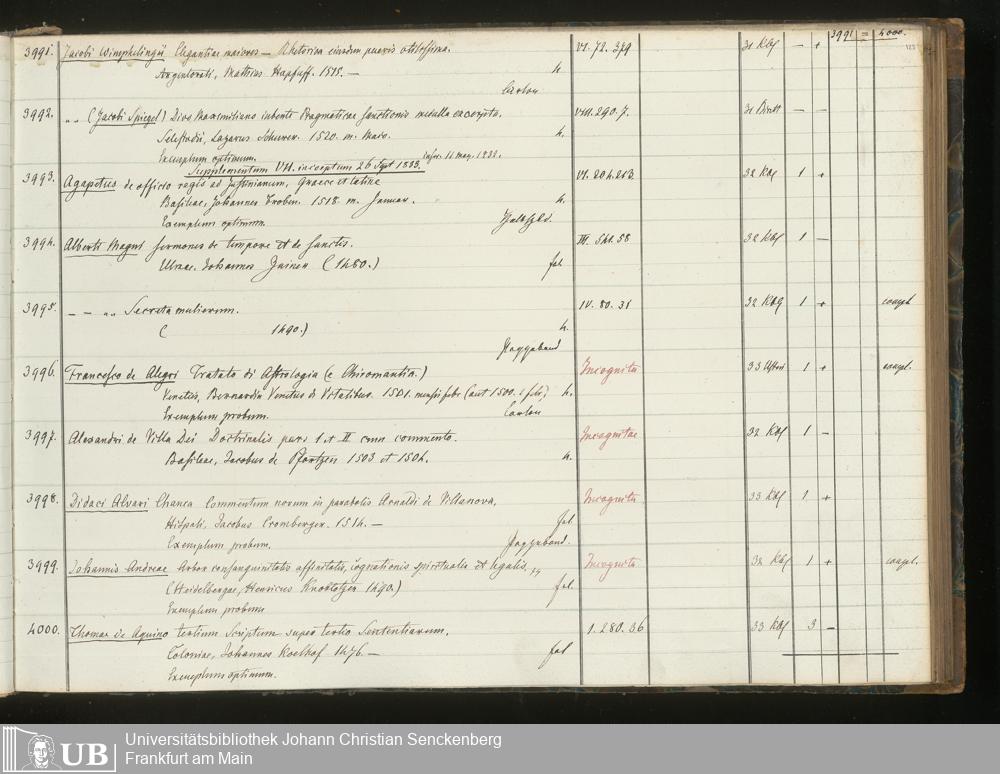 3991 = 4000.
3991. Jacobi Wimphelingii Elegantiae maiores — Rhetorica eiusdem pueris utilissima. VI. 72. 379 — +
Argentorati, Mathias Hupfuff. 1515. — 4.
Carton
3992. „ „ (Jacobi Spiegel) Divo Maximiliano iubente Pragmaticae Sanctionis medulla excerpta. VIII. 290. 7. — —
Selestadii, Lazarus Schurer. 1520. m. Marc. 4.
Exemplum optimum.
Supplementum VII. inceptum 26 Sept 1883.
3993. Agapetus de officio regis ad Justinianum, Graece et latine VI. 204. 263. 1 +
Basileae, Johannes Froben. 1518. m. Januar. 4.
Exemplum optimum.
3994. Alberti Magni Sermones de tempore et de Sanctis. III. 541. 58 1 —
Ulmae. Johannes Zainer (1480.) fol
3995. — — „ Secreta mulierum. IV. 80. 31 1 +
( 1490.) 4.
Pappband
3996. Francesco de Alegri Tratato di Astrologia (e Chiromantia.) Incognita 1 +
Venetiis, Bernardin Venetus di Vitalibus. 1501. 4.
Exemplum probum. Carton
3997. Alexandri de Villa Dei Doctrinalis pars 1 et II cum commento. Incognitae 1 —
Basileae, Jacobus de Pfortzen 1503 et 1504. 4.
3998. Didaci Alvari Chanca Commentum novum in parabolis Arnaldi de Villanova. Incognita 1 +
Hispali, Jacobus Cromberger. 1514. — fol
Exemplum probum. Pappband.
3999. Johannis Andreae Arbor consanguinitatis affinitatis, cognationis spiritualis et legalis. Incognita 1 +
(Heidelbergae, Henricus Knoblotzer 1490.) fol.
Exemplum probum
4000. Thomae de Aquino tertium Scriptum super tertio Sententiarum. I. 280. 36 3 —
Coloniae, Johannes Koelhof 1476. — fol
Exemplum optimum.
UB
Universitätsbibliothek Johann Christian Senckenberg
Frankfurt am Main